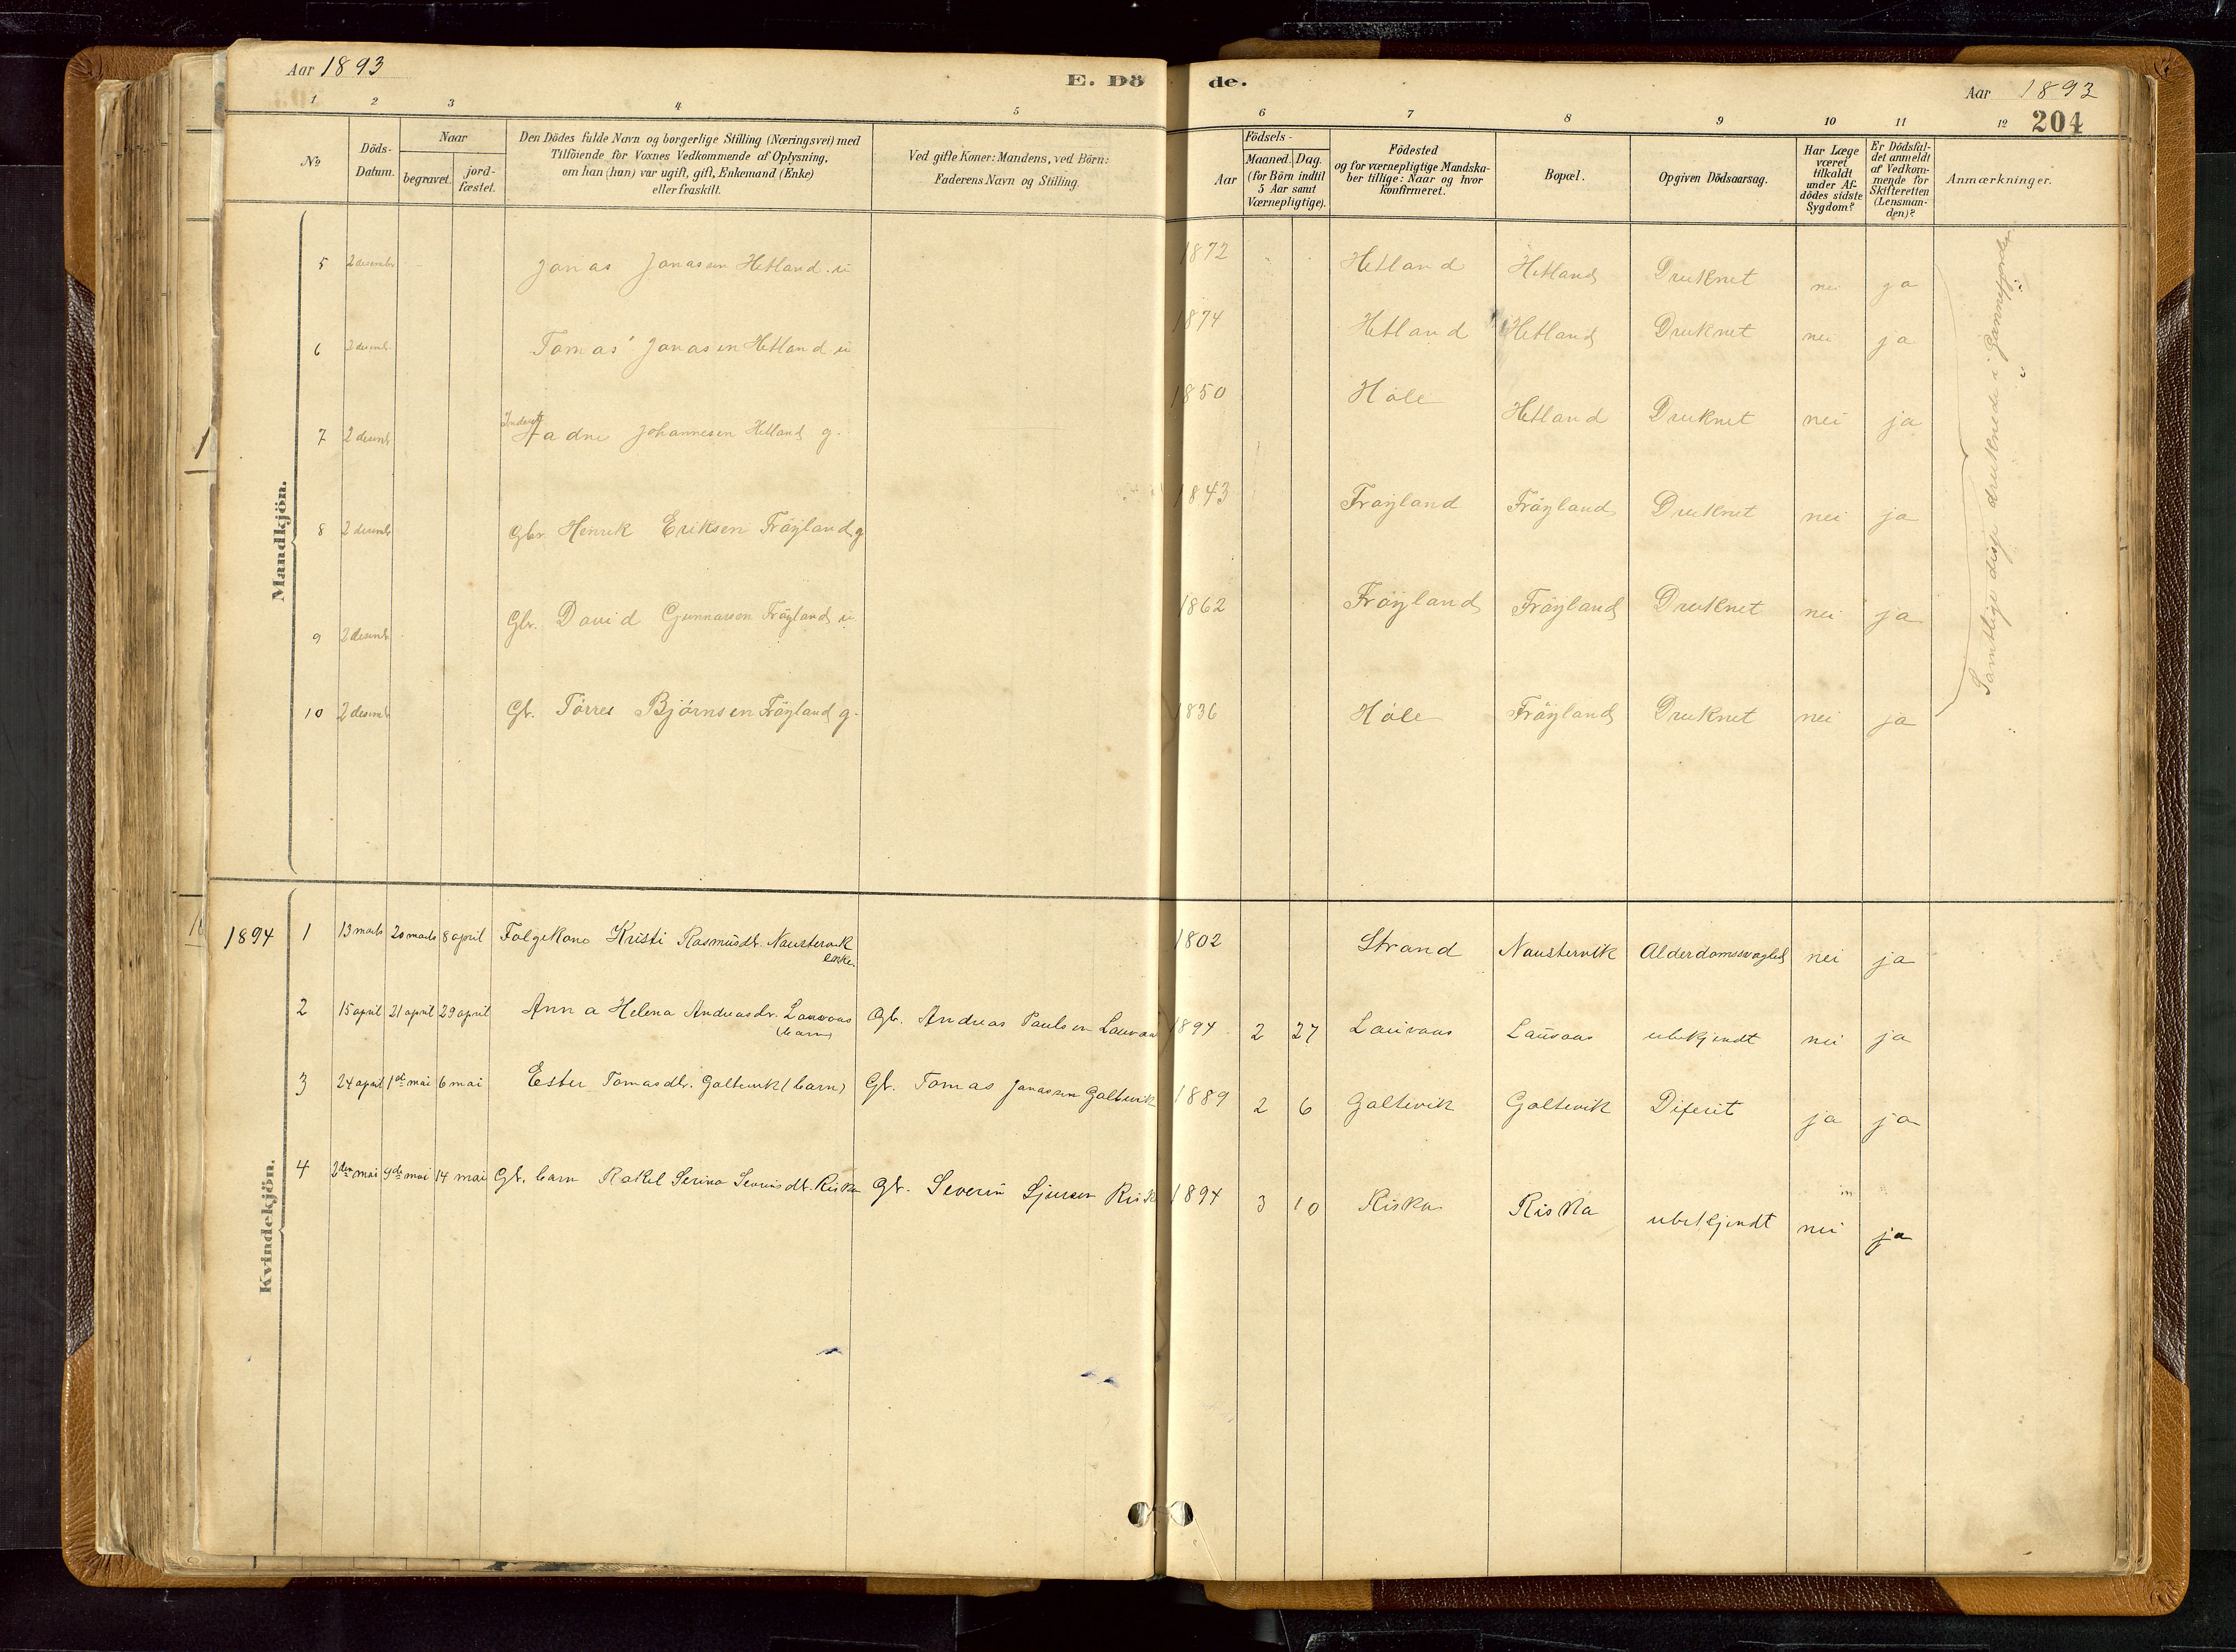 Aar 1893
E. Dö
de.
Aar 1893
204
1 2 3 4 5 6 7 8 9 10 11 12
No
Döds-
Datum.
Naar
begravet.
jord-
fæstet.
Den Dödes fulde Navn og borgerlige Stilling (Næringsvei) med
Tilföiende for Voxnes Vedkommende af Oplysning,
om han (hun) var ugift, gift, Enkemand (Enke)
eller fraskilt.
Ved gifte Koner: Mandens, ved Börn:
Faderens Navn og Stilling.
Aar
Födsels-
Maaned. Dag.
(for Börn indtil
5 Aar samt
Værnepligtige).
Födested
og for værnepligtige Mandska-
ber tillige: Naar og hvor
konfirmeret.
Bopæl.
Opgiven Dödsaarsag.
Har Læge
været
tilkaldt
under Af-
dödes sidste
Sygdom?
Er Dödsfal-
det anmeldt
af Vedkom-
mende for
Skifteretten
(Lensman-
den)?
Anmærkninger.
Mandkjön.
5 2 desember Jonas Jonassen Hetland u 1872 Hetland Hetland Druknet nei ja
6 2 desemb Tomas Jonasen Hetland u 1874 Hetland Hetland Druknet nei ja
7 2 desemb Inderst Hadne Johannesen Hetland g. 1850 Høle Hetland Druknet nei ja
8 2 desemb Gbr. Henrik Eriksen Frøyland g 1843 Frøyland Frøyland Druknet nei ja
9 2 desemb Gbr. David Gunnarsen Frøyland u 1862 Frøyland Frøyland Druknet nei ja
10 2 desemb Gb. Tørres Bjørnsen Frøyland g. 1836 Høle Frøyland Druknet nei ja
Samtlige disse druknede i
Kvindekjön.
1894 1 13 marts 20 marts 8 april Følgekone Kristi Rasmusdt. Naustervik
enke.
1802 Strand Naustervik Alderdomssvaghed nei ja
2 15 april 21 april 29 april Anna Helena Andreasdr. Lauvaas
(barn)
Gb. Andreas Paulsen Lauvaas 1894 2 27 Lauvaas Lauvaas ubekjendt nei ja
3 24 april 1ste mai 6 mai Ester Tomasdtr. Galtevik (barn) Gb. Tomas Jonassen Galtevik 1889 2 6 Galtevik Galtevik Diferit ja ja
4 2den mai 9de mai 14 mai Gb. barn Rakel Serina Severinsdt. Riska Gb. Severin Sjursen Riska 1894 3 10 Riska Riska ubekjendt nei ja